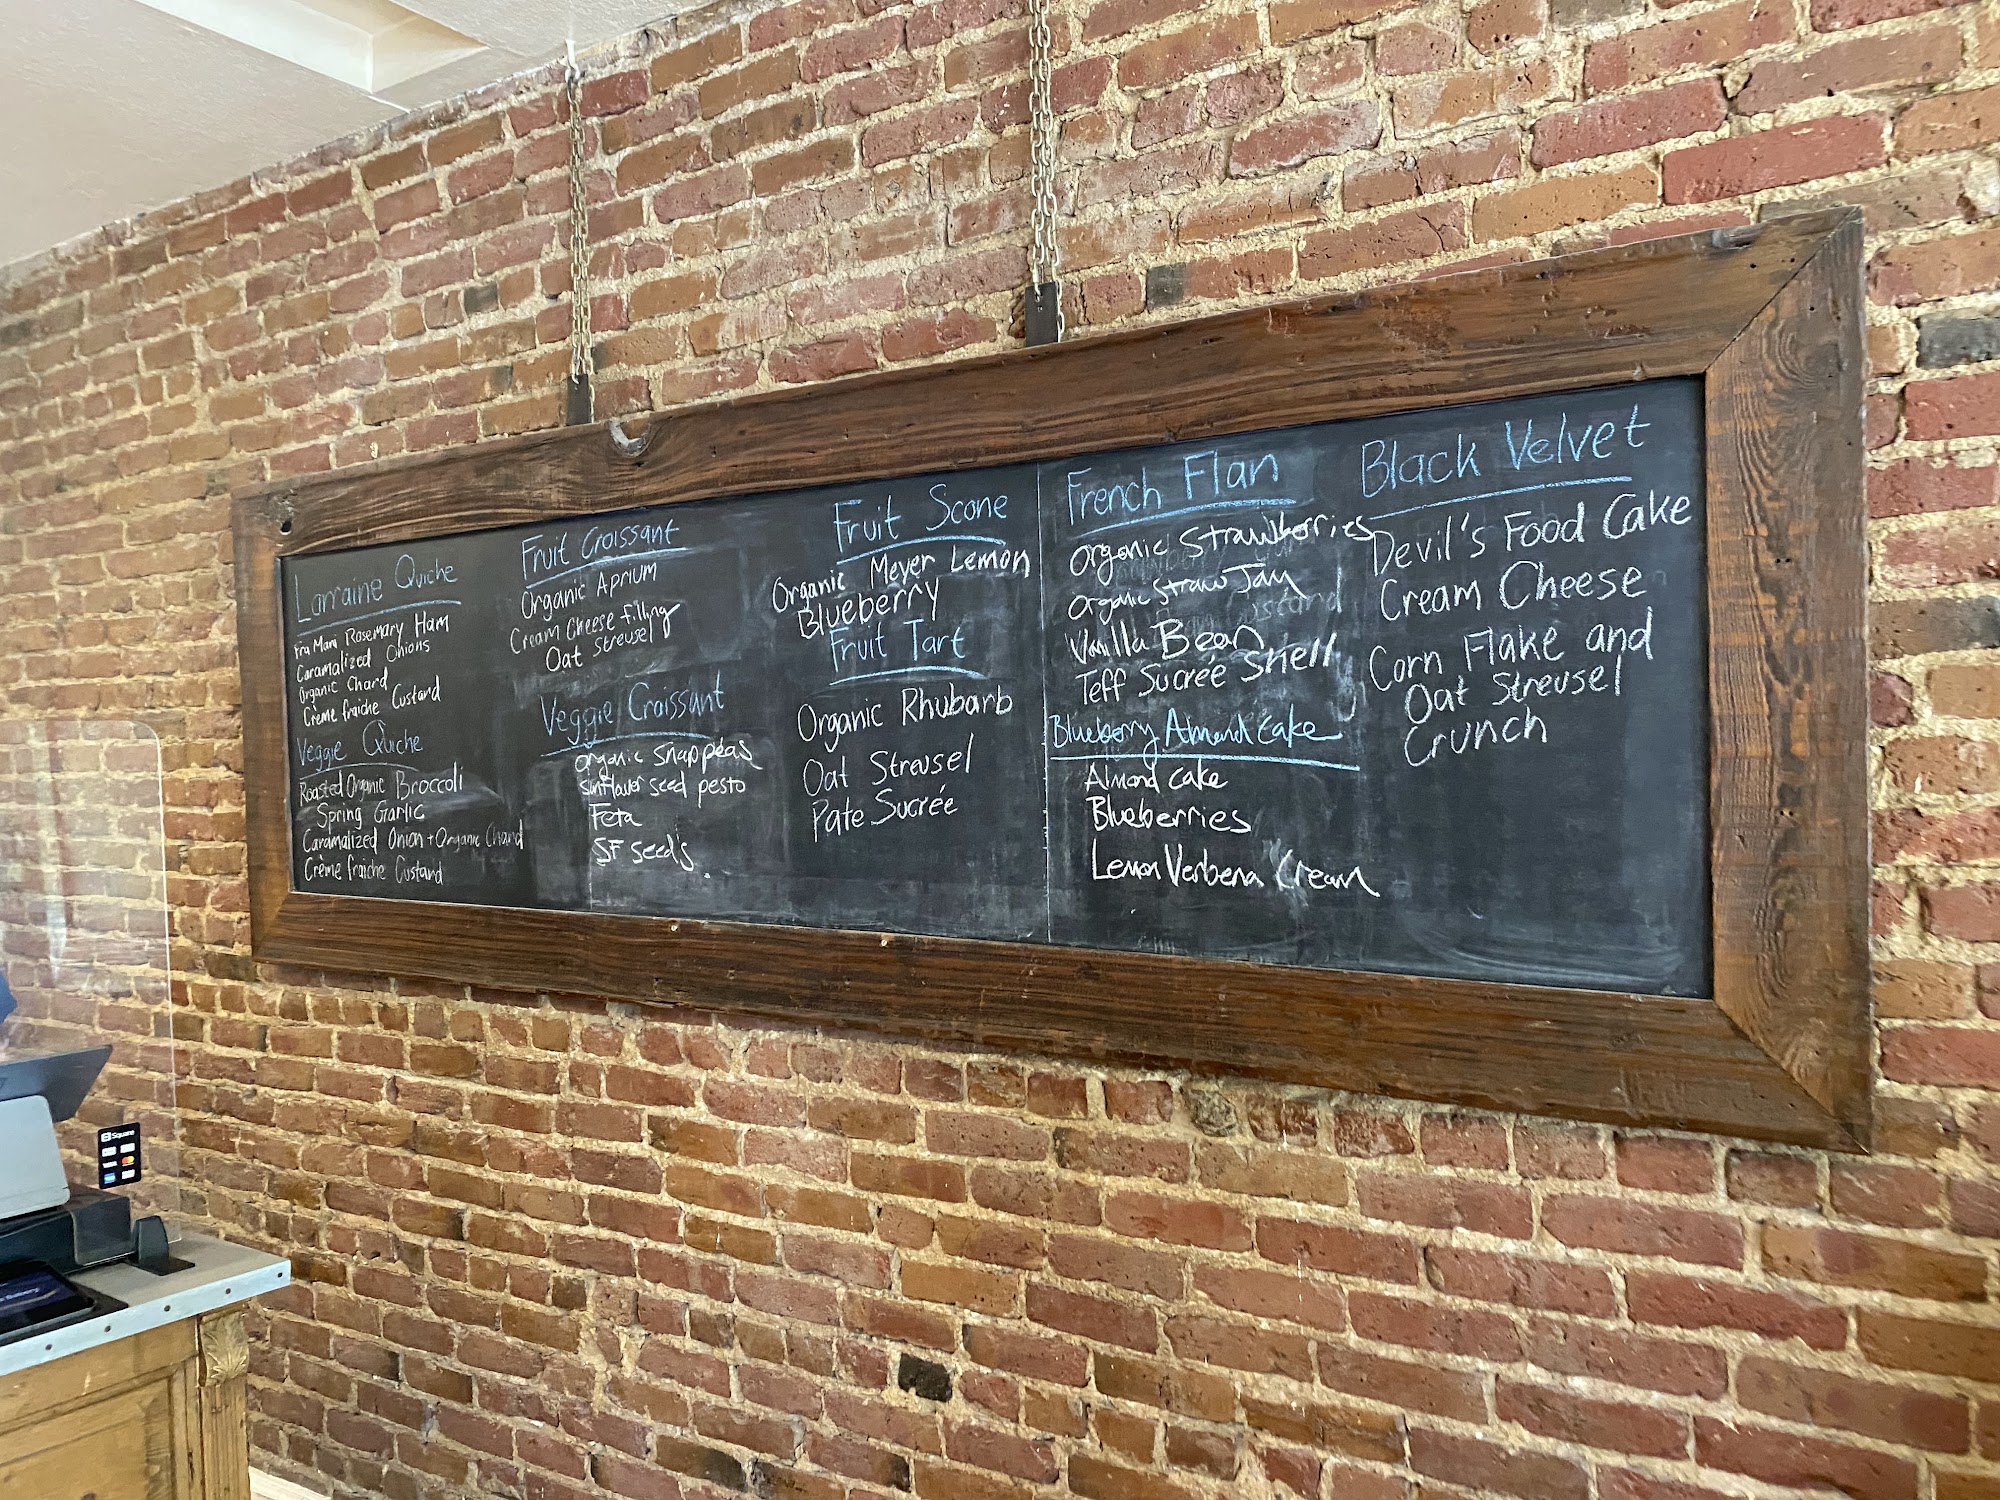 Larraine Quiche
Fra Mani Rosemary Ham
Caramalized Onions
Organic Chard
Crème fraiche Custard
Veggie Quiche
Roasted Organic Broccoli
Spring Garlic
Caramalized Onion + Organic Chard
Crème fraiche Custard
Fruit Croissant
Organic Aprium
Cream Cheese filling
Oat Streusel
Veggie Croissant
Organic Snap peas
Sunflower seed pesto
Feta
SF seeds
Fruit Scone
Organic Meyer Lemon
Blueberry
Fruit Tart
Organic Rhubarb
Oat Streusel
Pate Sucrée
French Flan
Organic Strawberries
Organic Straw Jam
Vanilla Bean
Teff Sucrée Shell
Blueberry Almond Cake
Almond Cake
Blueberries
Lemon Verbena Cream
Black Velvet
Devil's Food Cake
Cream Cheese
Corn Flake and
Oat Streusel
Crunch
Square